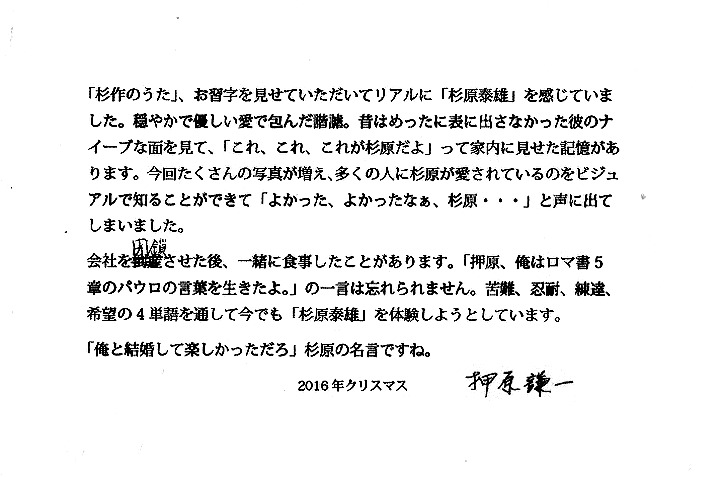 「杉作のうた」、お習字を見せていただいてリアルに「杉原泰雄」を感じていま
した。穏やかで優しい愛で包んだ諧謔。昔はめったに表に出さなかった彼のナ
イーブな面を見て、「これ、これ、これが杉原だよ」って家内に見せた記憶があ
ります。今回たくさんの写真が増え、多くの人に杉原が愛されているのをビジュ
アルで知ることができて「よかった、よかったなぁ、杉原・・・」と声に出て
しまいました。
閉鎖
会社をさせた後、一緒に食事したことがあります。「押原、俺はロマ書５
章のパウロの言葉を生きたよ。」の一言は忘れられません。苦難、忍耐、練達、
希望の４単語を通して今でも「杉原泰雄」を体験しようとしています。
「俺と結婚して楽しかっただろ」杉原の名言ですね。
2016年クリスマス
押原謙一